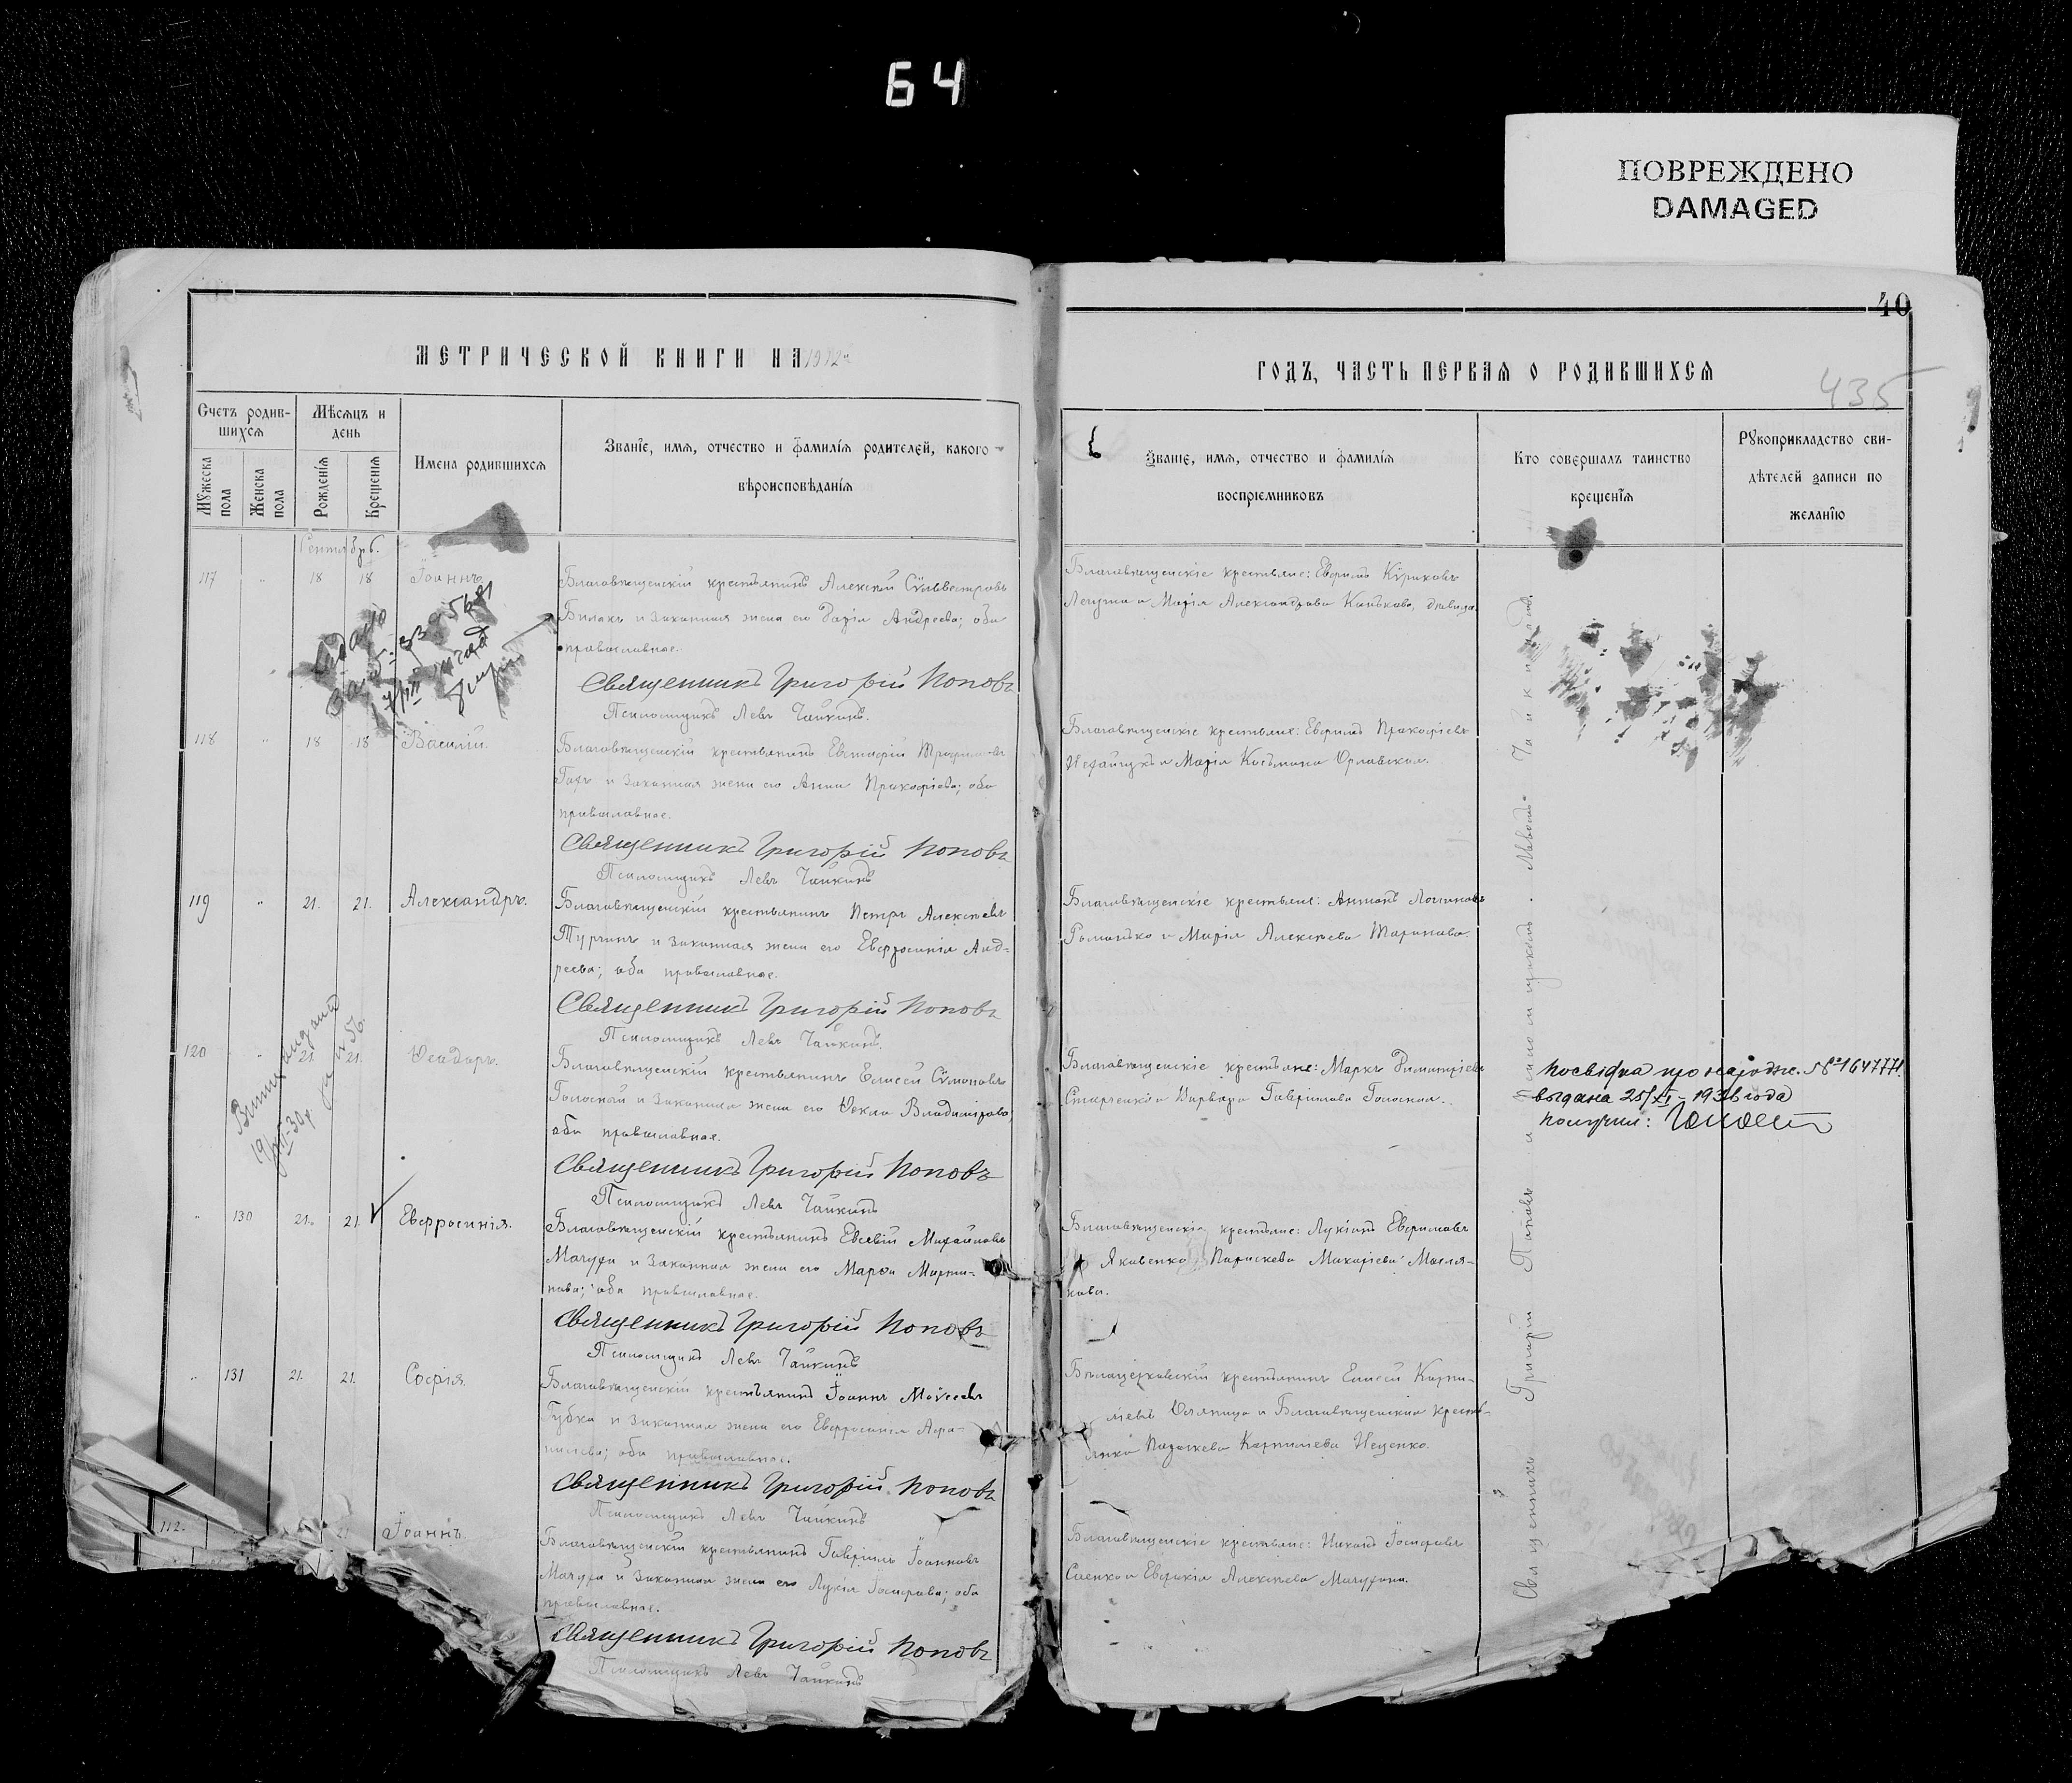 64
ПОВРЕЖДЕНО
DAMAGED
40
435
МЕТРИЧЕСКОЙ КНИГИ НА 1912й
ГОДЪ, ЧАСТЬ ПЕРВАЯ О РОДИВШИХСЯ
Счетъ родив-
шихся
Мужеска пола
Женска пола
Мѣсяцъ и день
Рожденія
Крещенія
Имена родившихся
Званіе, имя, отчество и фамилія родителей, какого
вѣроисповѣданія
Званіе, имя, отчество и фамилія
воспріемниковъ
Кто совершалъ таинство
крещенія
Рукоприкладство сви-
дѣтелей записи по
желанію
Сентябрь.
117 " 18 18 Іоаннъ.
Благовѣщенскій крестьянинъ Алексій Сильвестровъ
и законная жена его Дарія Андреева; оба
православные.
Священникъ Григорій Поповъ
Псаломщикъ Левъ Чайкинъ.
Благовѣщенскіе крестьяне: Ефримъ Кириковъ
и Марія Александрова
118 " 18 18 Василій.
Благовѣщенскій крестьянинъ Евстафій
и законная жена его Анна Прокофіева; оба
православные.
Священникъ Григорій Поповъ
Псаломщикъ Левъ Чайкинъ
Благовѣщенскіе крестьяне: Ефримъ Прокофіевъ
и Марія Косьмина Орловская.
119 " 21. 21. Александръ.
Благовѣщенскій крестьянинъ Петръ Алексѣевъ
Турчинъ и законная жена его Евфросинія Анд-
реева; оба православные.
Священникъ Григорій Поповъ
Псаломщикъ Левъ Чайкинъ.
Благовѣщенскіе крестьяне: Антонъ Логиновъ
Романько и Марія Алексѣева Таранова.
120 " 21 21. Ѳеодоръ.
Благовѣщенскій крестьянинъ Елисей Сумоновъ
Голоский и законная жена его Ѳекла Владимірова;
оба православные.
Священникъ Григорій Поповъ
Псаломщикъ Левъ Чайкинъ
Благовѣщенскіе крестьяне: Маркъ Димитріевъ
Старченко и Варвара Гавріилова Голоская.
выдана 25/XI - 1936 года
получил:
" 130 21. 21. Евфросинія.
Благовѣщенскій крестьянинъ Евсевій Михайловъ
Мачуфа и законная жена его Марѳа Марти-
нова; оба православные.
Священникъ Григорій Поповъ
Псаломщикъ Левъ Чайкинъ
Благовѣщенскіе крестьяне: Лукіанъ Ефримовъ
Яковенко Параскева Макаріева Масля-
кова.
" 131 21. 21. Софія.
Благовѣщенскій крестьянинъ Іоаннъ Моѵсеевъ
Губка и законная жена его Евфросинія
оба православные.
Священникъ Григорій Поповъ
Псаломщикъ Левъ Чайкинъ
Бѣлоцерковскій крестьянинъ Елисей Карпи-
ліевъ и Благовѣщенская кресть-
янка Параскева Карпиліева Неценко.
112. 21 Іоаннъ.
Благовѣщенскій крестьянинъ Гавріилъ Іоанновъ
Мачуфа и законная жена его Лукія Іосифова; оба
православные.
Священникъ Григорій Поповъ
Псаломщикъ Левъ Чайкинъ
Благовѣщенскіе крестьяне: Никонъ Іосифовъ
Саенко и Евдокія Алексѣева Мачуфина.
Священникъ Григорій Поповъ и Псаломщикъ Левъ Чайкинъ.